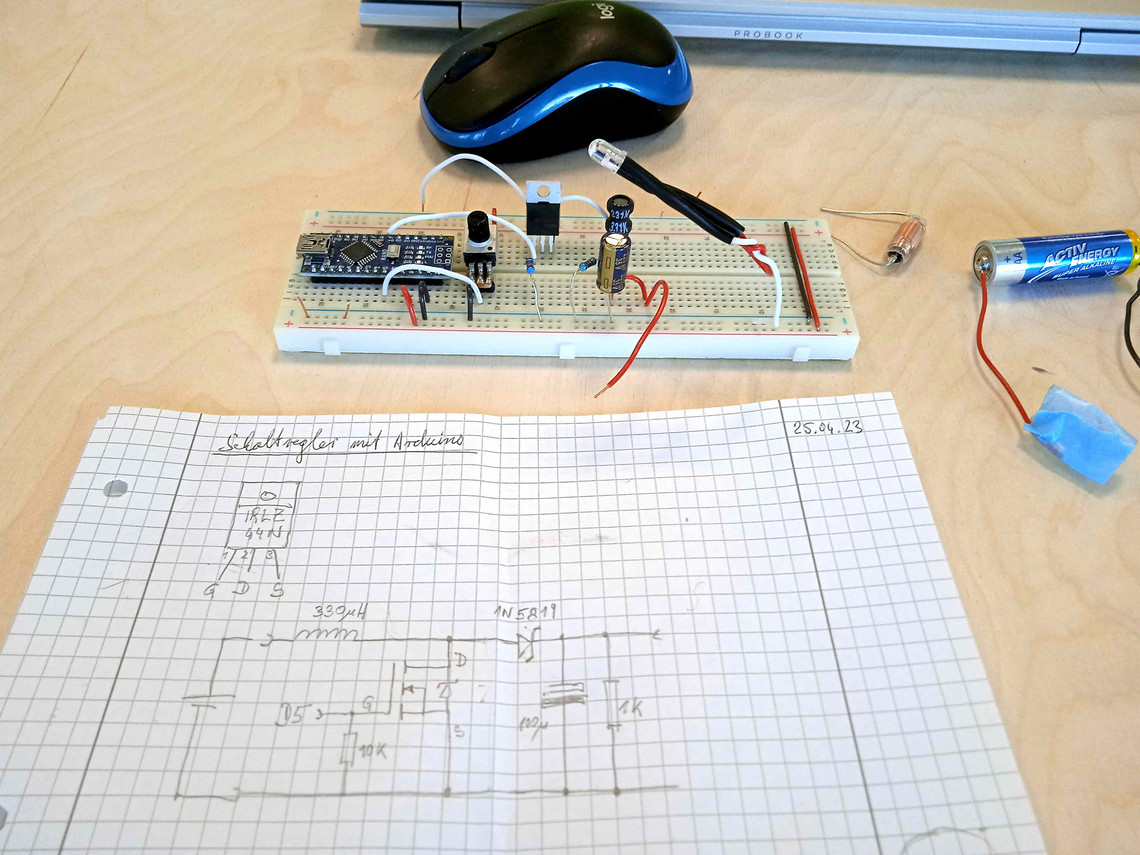 logi
PROBOOK
331K
331K
ACTIV
ENERGY
SUPER ALKALINE
AA
Schaltregler mit Arduino
25.04.23
IRLZ
44N
1 2 3
G D S
330µH
1N5819
D
D5
G
S
10K
100µ
1K